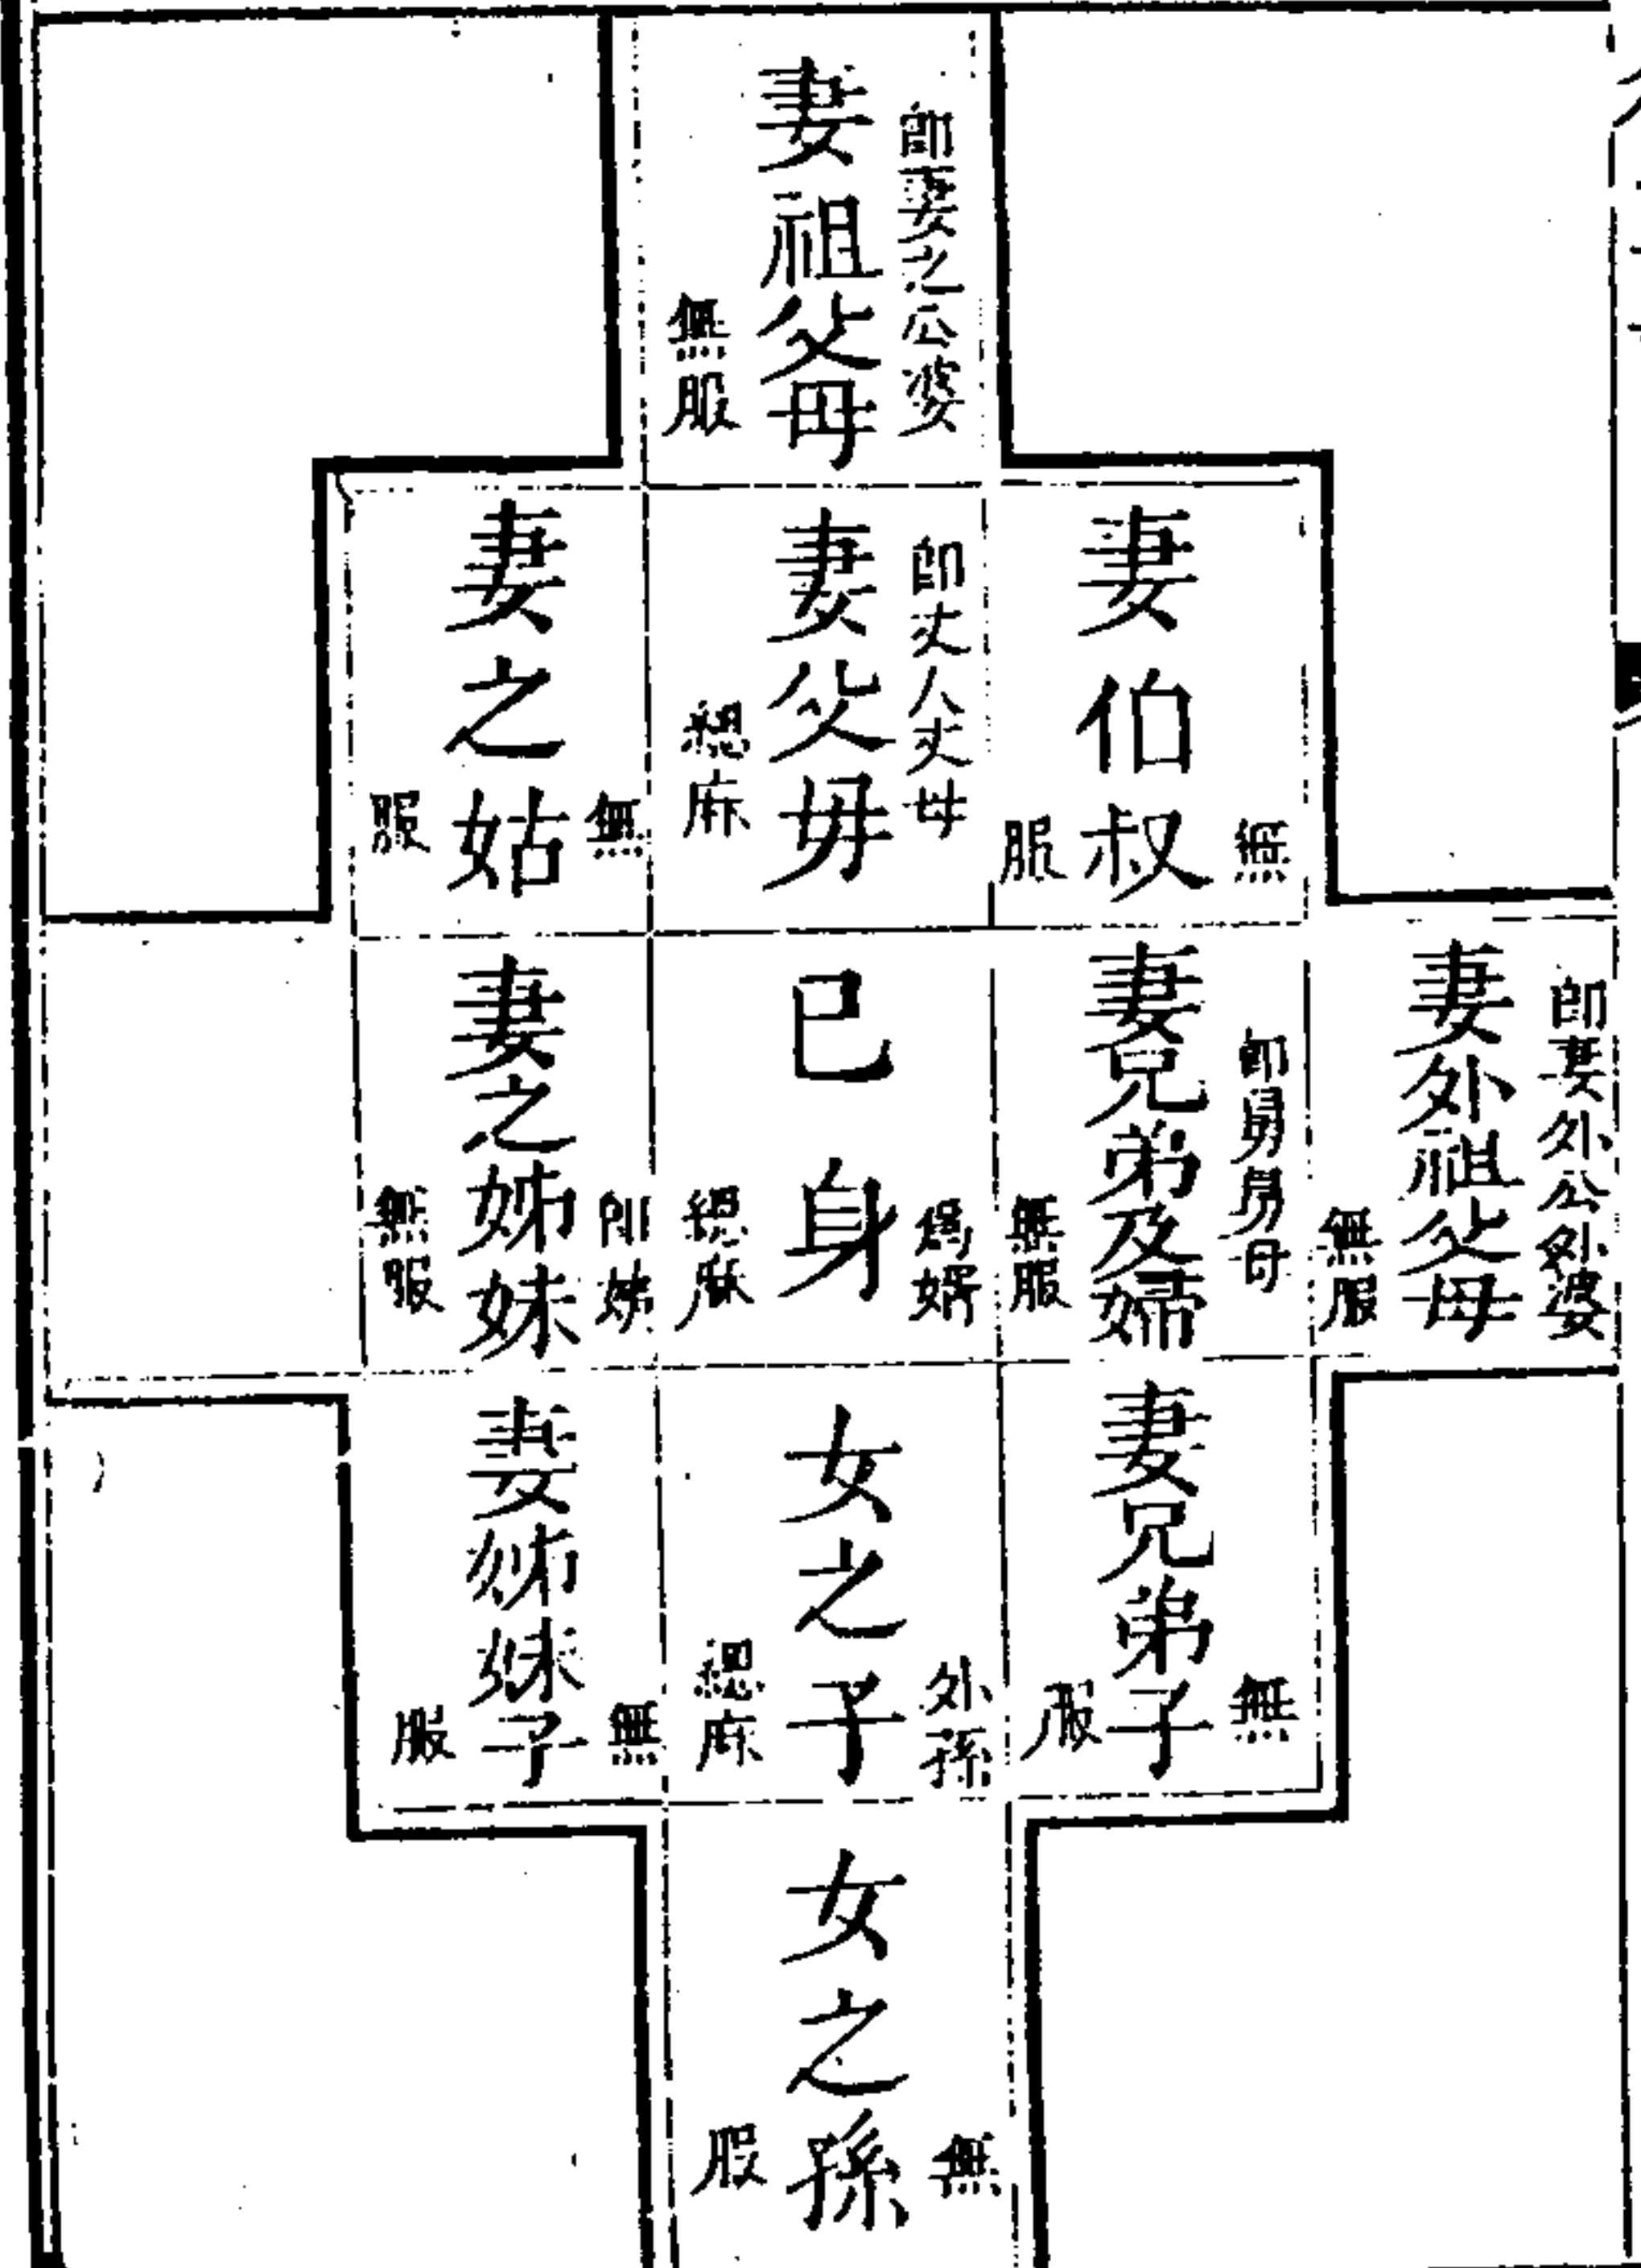 即妻之公婆
妻祖父母
無服
妻伯叔
無服
即丈人丈母
妻父母
緦麻
妻之姑
無服
即妻外公外婆
妻外祖父母
無服
即舅舅母
妻兄弟及婦
無服
為婿
己身
緦麻
即姨
妻之姊妹
無服
妻兄弟子
無服
外孫
女之子
緦麻
妻姊妹子
無服
女之孫
無服